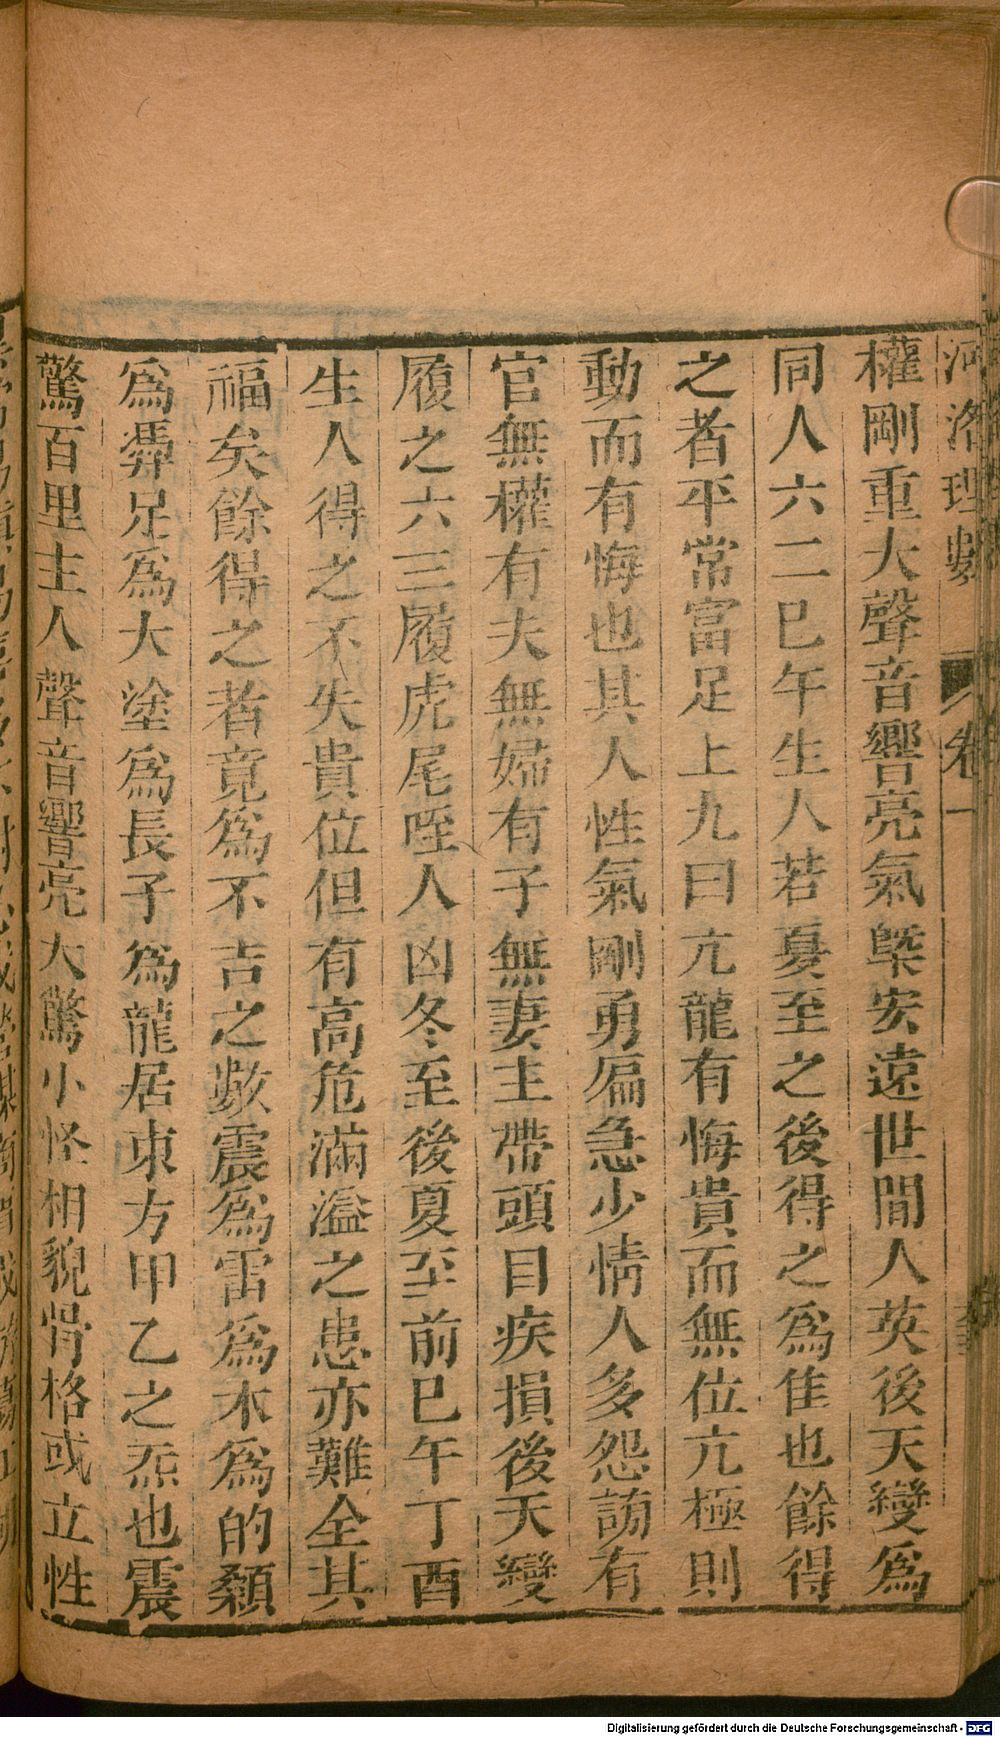 河洛理數 卷一
權剛重大聲音響亮氣槩安遠世間人英後天變爲
同人六二巳午生人若夏至之後得之爲佳也餘得
之者平常富足上九曰亢龍有悔貴而無位亢極則
動而有悔也其人性氣剛勇徧急少情人多怨謗有
官無權有夫無婦有子無妻主帶頭目疾損後天變
履之六三履虎尾咥人凶冬至後夏至前巳午丁酉
生人得之不失貴位但有高危滿溢之患亦難全其
福矣餘得之者竟爲不吉之數震爲雷爲木爲的顙
爲馵足爲大塗爲長子爲龍居東方甲乙之炁也震
驚百里主人聲音響亮大驚小怪相貌骨格或立性
Digitalisierung gefördert durch die Deutsche Forschungsgemeinschaft - DFG